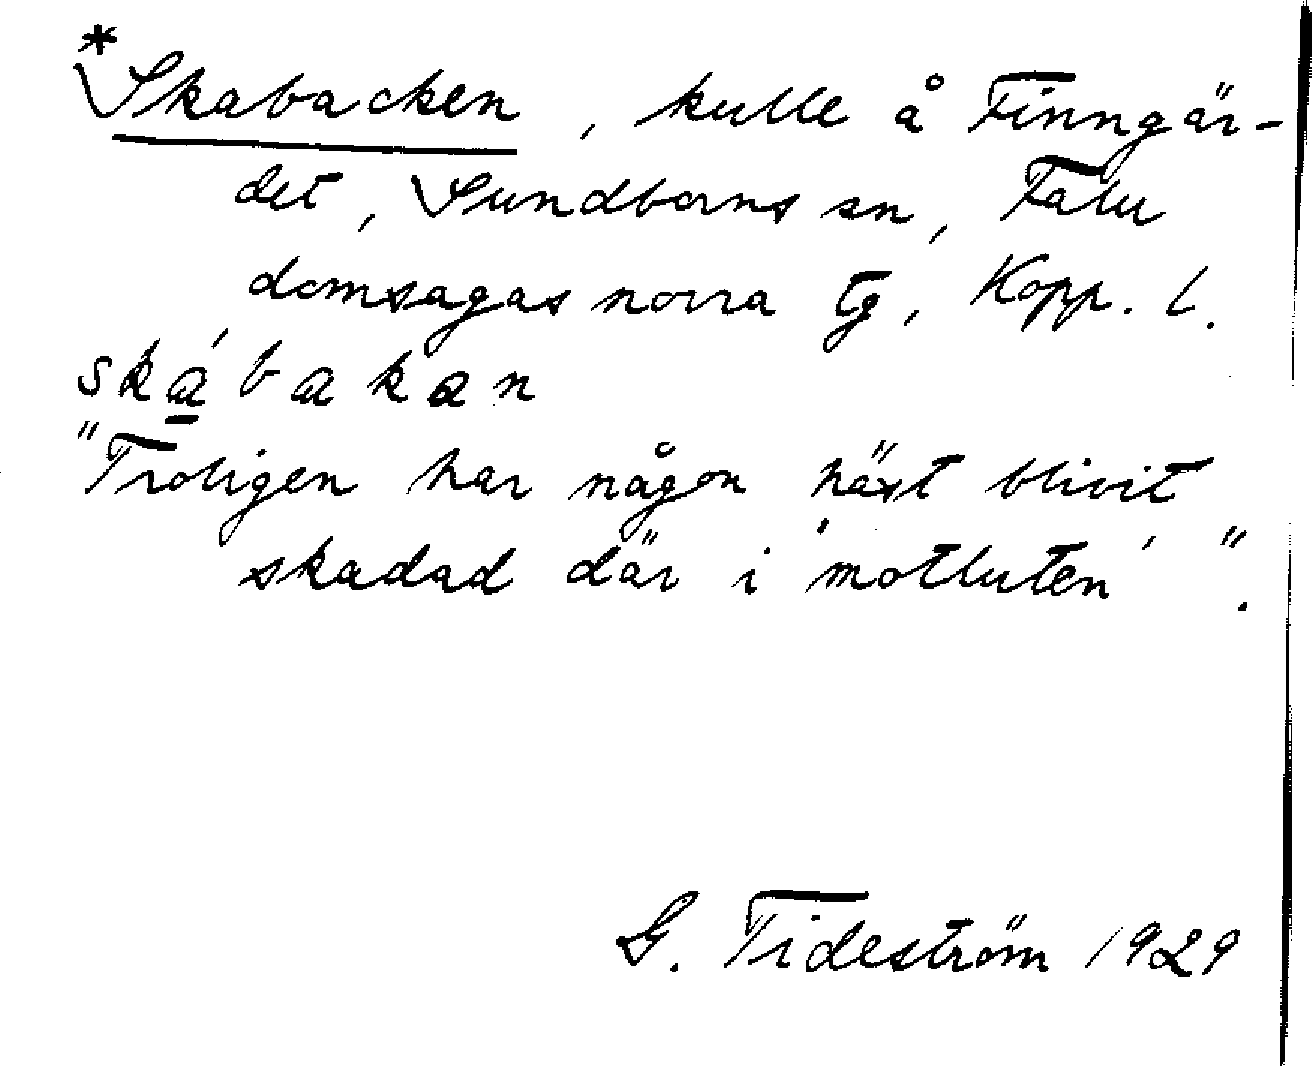 *Skabacken, kulle å Finngär-
det, Sundborns sn, Falu
domsagas norra tg, Kopp. l.
ská̱bakan
"Troligen har någon häst blivit
skadad där i 'motluten' ".
G. Tideström 1929